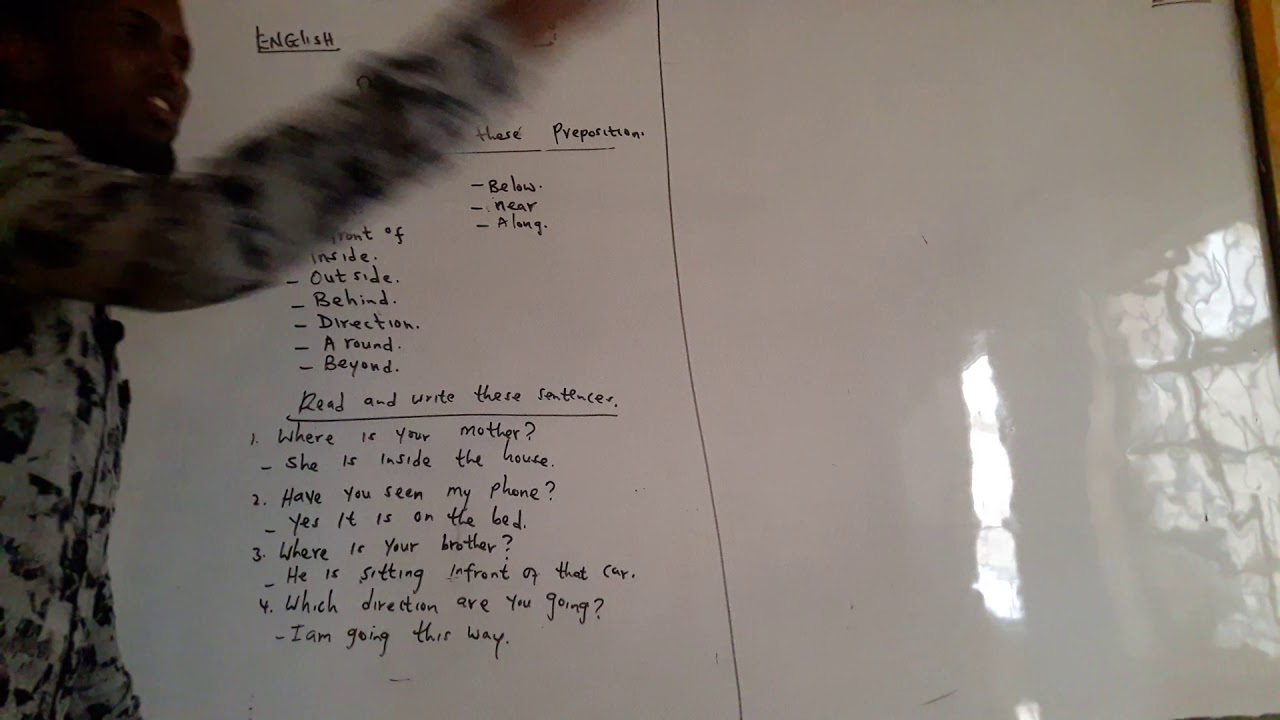 ENGlisH
these Preposition.
- Below.
- near
- Along.
front of
inside.
- Out side.
- Behind.
- Direction.
- A round.
- Beyond.
Read and write these sentences.
1. Where is your mother?
- She is inside the house.
2. Have you seen my phone?
- Yes it is on the bed.
3. Where is your brother?
- He is sitting infront of that car.
4. Which direction are you going?
- I am going this way.